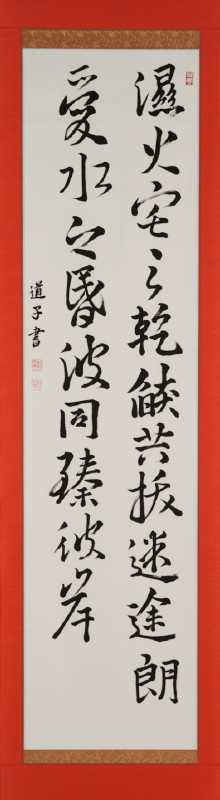 濕火宅之乾燄共拔迷途朗
愛水之昬波同臻彼岸
道子書